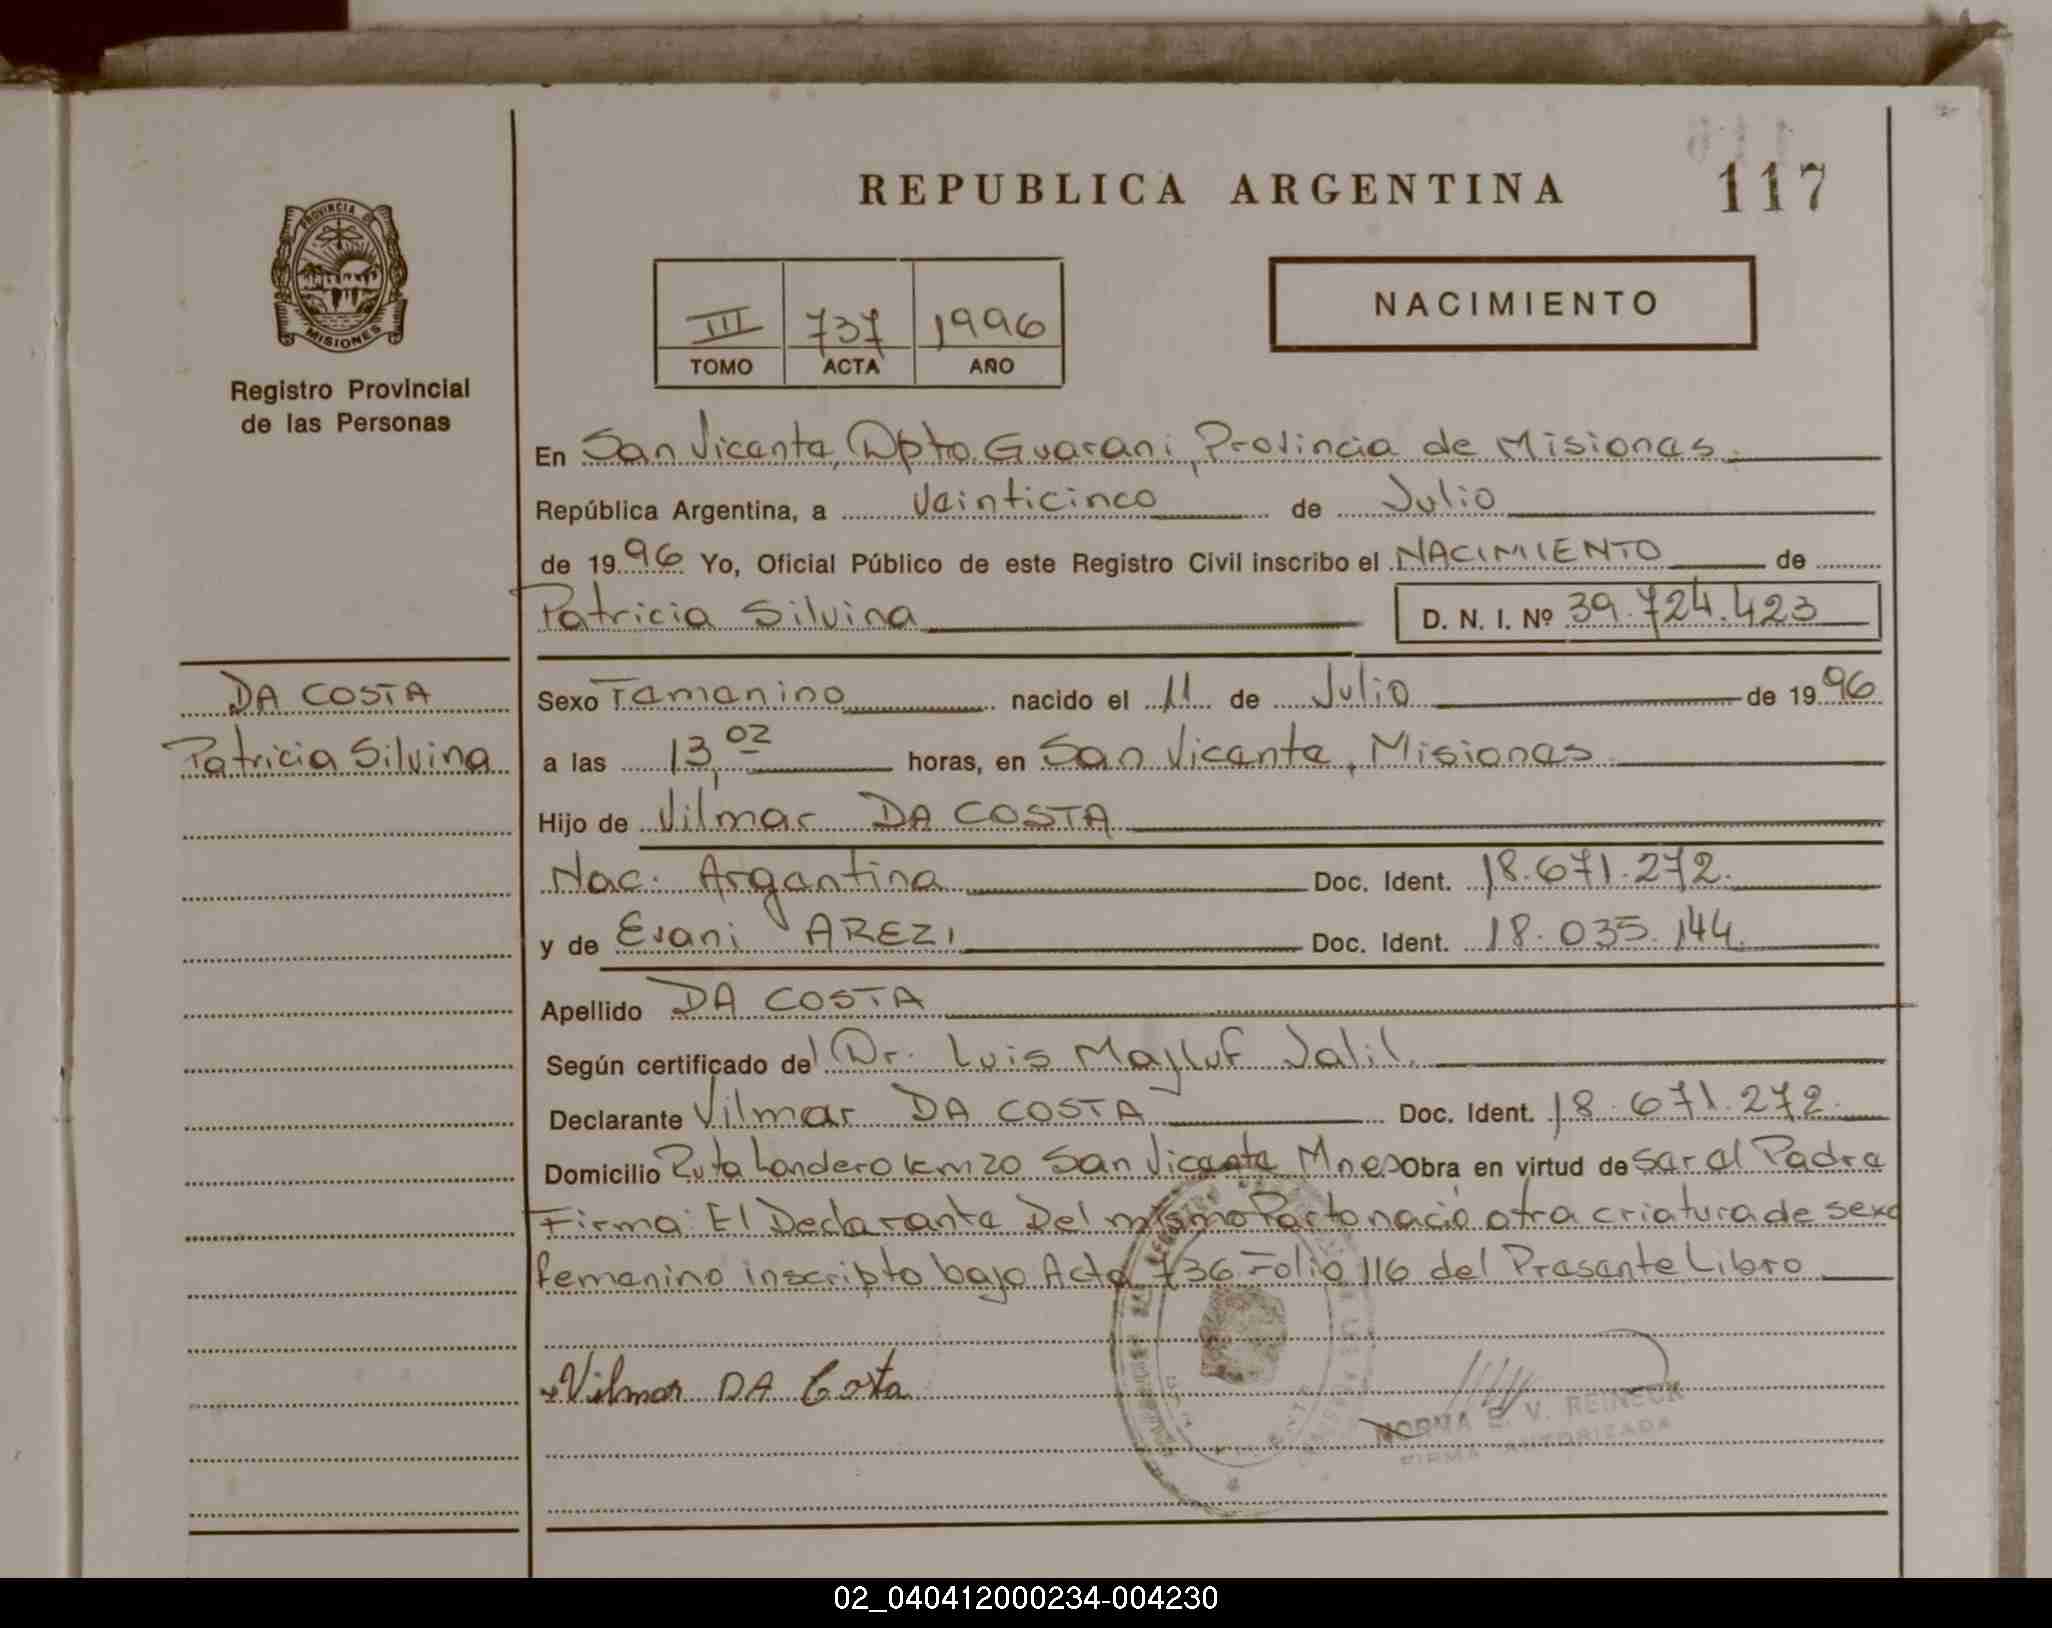 REPUBLICA ARGENTINA
117
PROVINCIA DE
MISIONES
Registro Provincial
de las Personas
III 737 1996
TOMO ACTA AÑO
NACIMIENTO
En San Vicente, Dpto. Guarani, Provincia de Misiones.
República Argentina, a Veinticinco de Julio
de 1996 Yo, Oficial Público de este Registro Civil inscribo el NACIMIENTO de
Patricia Silvina D. N. I. Nº 39.724.423
DA COSTA
Patricia Silvina
Sexo Femenino nacido el 11 de Julio de 1996
a las 13,02 horas, en San Vicente, Misiones.
Hijo de Vilmar DA COSTA
Nac. Argentina Doc. Ident. 18.671.272.
y de Evani AREZI Doc. Ident. 18.035.144.
Apellido DA COSTA
Según certificado del Dr. Luis Majluf Jalil.
Declarante Vilmar DA COSTA Doc. Ident. 18.671.272.
Domicilio Ruta Londero km 20 San Vicente Mnes Obra en virtud de ser el Padre
Firma: El Declarante Del mismo Parto nació otra criatura de sexo
femenino inscripto bajo Acta 736 Folio 116 del Presente Libro
Vilmar DA Costa
NORMA E. V. REINECK
FIRMA AUTORIZADA
02_040412000234-004230